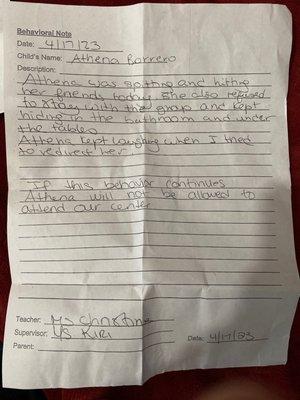 Behavioral Note
Date: 4/17/23
Child's Name: Athena Borrero
Description:
Athena was spitting and hitting
her friends today. She also refused
to stay with the group and kept
hiding in the bathroom and under
the tables
Athena kept laughing when I tried
to redirect her.
If this behavior continues
Athena will not be allowed to
attend our center
Teacher: Ms Christine
Supervisor: Kiri
Date: 4/17/23
Parent: